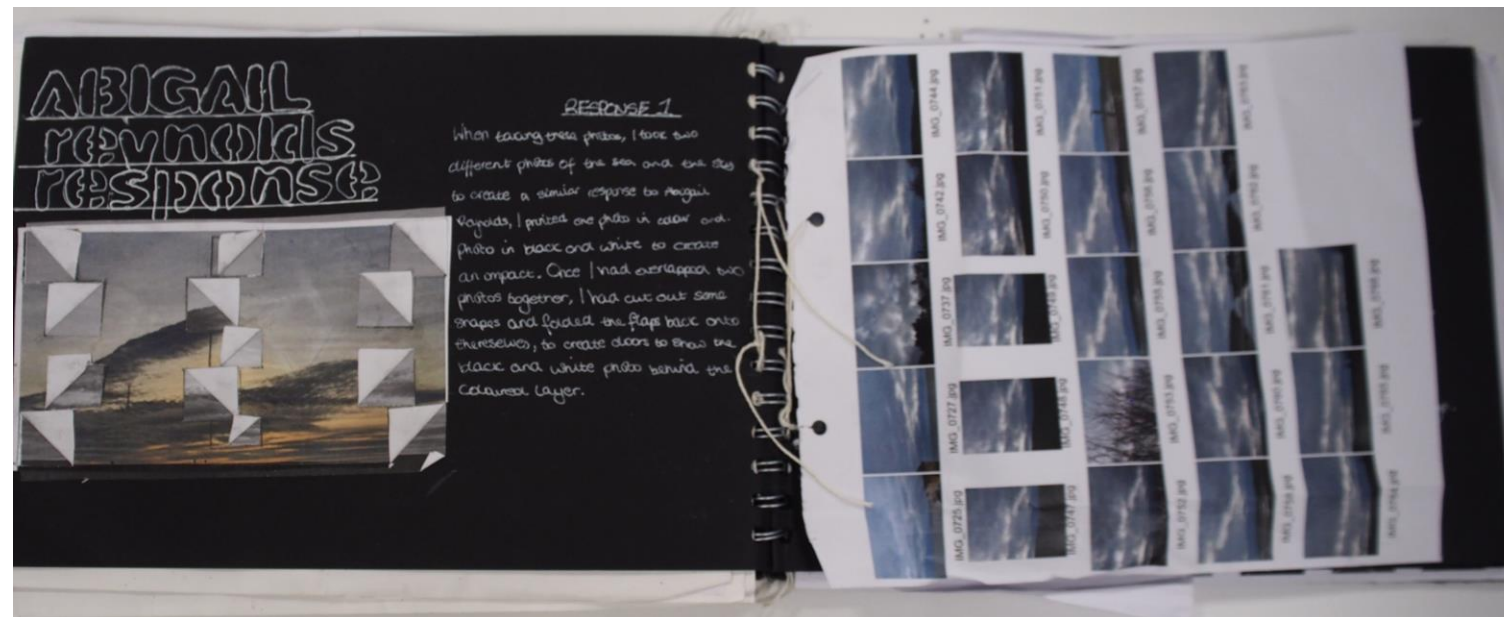 ABIGAIL
reynolds
response
RESPONSE 1
When taking these photos, I took two
different photos of the sea and the sky
to create a similar response to Abigail
Raynolds, I printed one photo in colour and
photo in black and white to create
an impact. Once I had overlapped two
photos together, I had cut out some
shapes and folded the flaps back onto
thereselves, to create doors to show the
black and white photo behind the
coloured layer.
IMG_0725.jpg IMG_0727.jpg IMG_0737.jpg IMG_0742.jpg IMG_0744.jpg
IMG_0747.jpg IMG_0748.jpg IMG_0749.jpg IMG_0750.jpg IMG_0751.jpg
IMG_0752.jpg IMG_0753.jpg IMG_0757.jpg
IMG_0760.jpg IMG_0761.jpg
IMG_0764.jpg IMG_0765.jpg